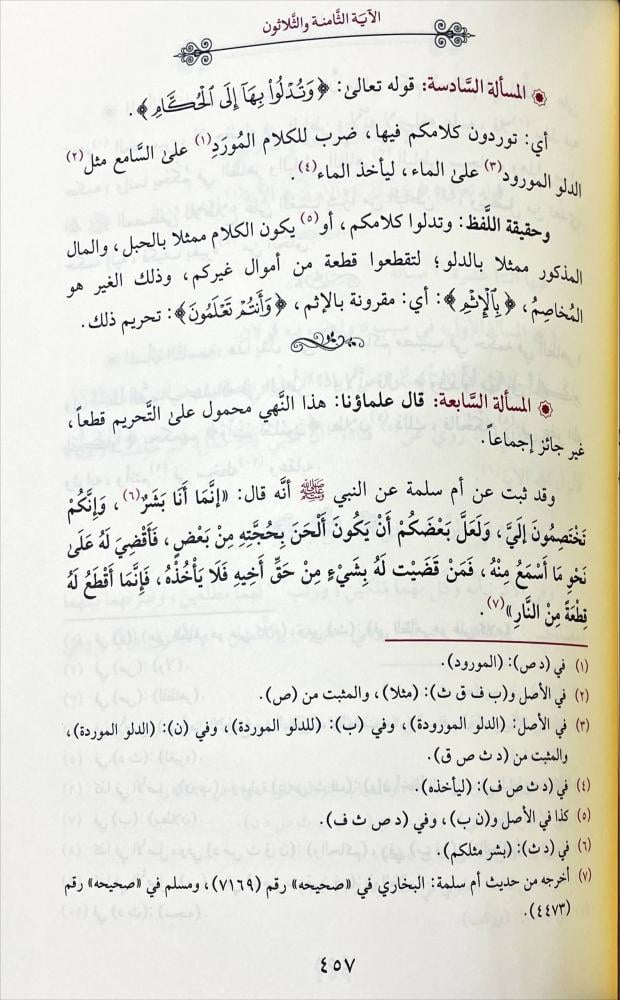 الآيَة الثَّامنة والثَّلاثون
المسألة السَّادسة: قوله تعالىٰ: ﴿وَتُدْلُوا۟ بِهَآ إِلَى ٱلْحُكَّامِ﴾.
أي: توردون كلامكم فيها، ضرب للكلام المُورَدِ(١) علىٰ السَّامع مثل(٢)
الدلو المورود(٣) علىٰ الماء، ليأخذ الماء(٤).
وحقيقة اللَّفظ: وتدلوا كلامكم، أو(٥) يكون الكلام ممثلا بالحبل، والمال
المذكور ممثلا بالدلو؛ لتقطعوا قطعة من أموال غيركم، وذلك الغير هو
المُخاصِمُ، ﴿بِٱلْإِثْمِ﴾: أي: مقرونة بالإثم، ﴿وَأَنتُمْ تَعْلَمُونَ﴾: تحريم ذلك.
المسألة السَّابعة: قال علماؤنا: هذا النَّهي محمول علىٰ التَّحريم قطعاً،
غير جائز إجماعاً.
وقد ثبت عن أم سلمة عن النبي ﷺ أنَّه قال: «إنَّمَا أَنَا بَشَرٌ(٦)، وَإِنَّكُمْ
تَخْتَصِمُونَ إِلَيَّ، وَلَعَلَّ بَعْضَكُمْ أَنْ يَكُونَ أَلْحَنَ بِحُجَّتِهِ مِنْ بَعْضٍ، فَأَقْضِيَ لَهُ عَلَىٰ
نَحْوِ مَا أَسْمَعُ مِنْهُ، فَمَنْ قَضَيْت لَهُ بِشَيْءٍ مِنْ حَقِّ أَخِيهِ فَلَا يَأْخُذْهُ، فَإِنَّمَا أَقْطَعُ لَهُ
قِطْعَةً مِنْ النَّارِ»(٧).
(١) في (د ص): (المورود).
(٢) في الأصل و(ب ف ق ث): (مثلا)، والمثبت من (ص).
(٣) في الأصل: (الدلو المورودة)، وفي (ب): (للدلو الموردة)، وفي (ن): (الدلو الموردة)،
والمثبت من (د ث ص ق).
(٤) في (د ث ص ف): (ليأخذه).
(٥) كذا في الأصل و(ن ب)، وفي (د ص ث ف).
(٦) في (د ث): (بشر مثلكم).
(٧) أخرجه من حديث أم سلمة: البخاري في «صحيحه» رقم (٧١٦٩)، ومسلم في «صحيحه» رقم
(٤٤٧٣).
٤٥٧